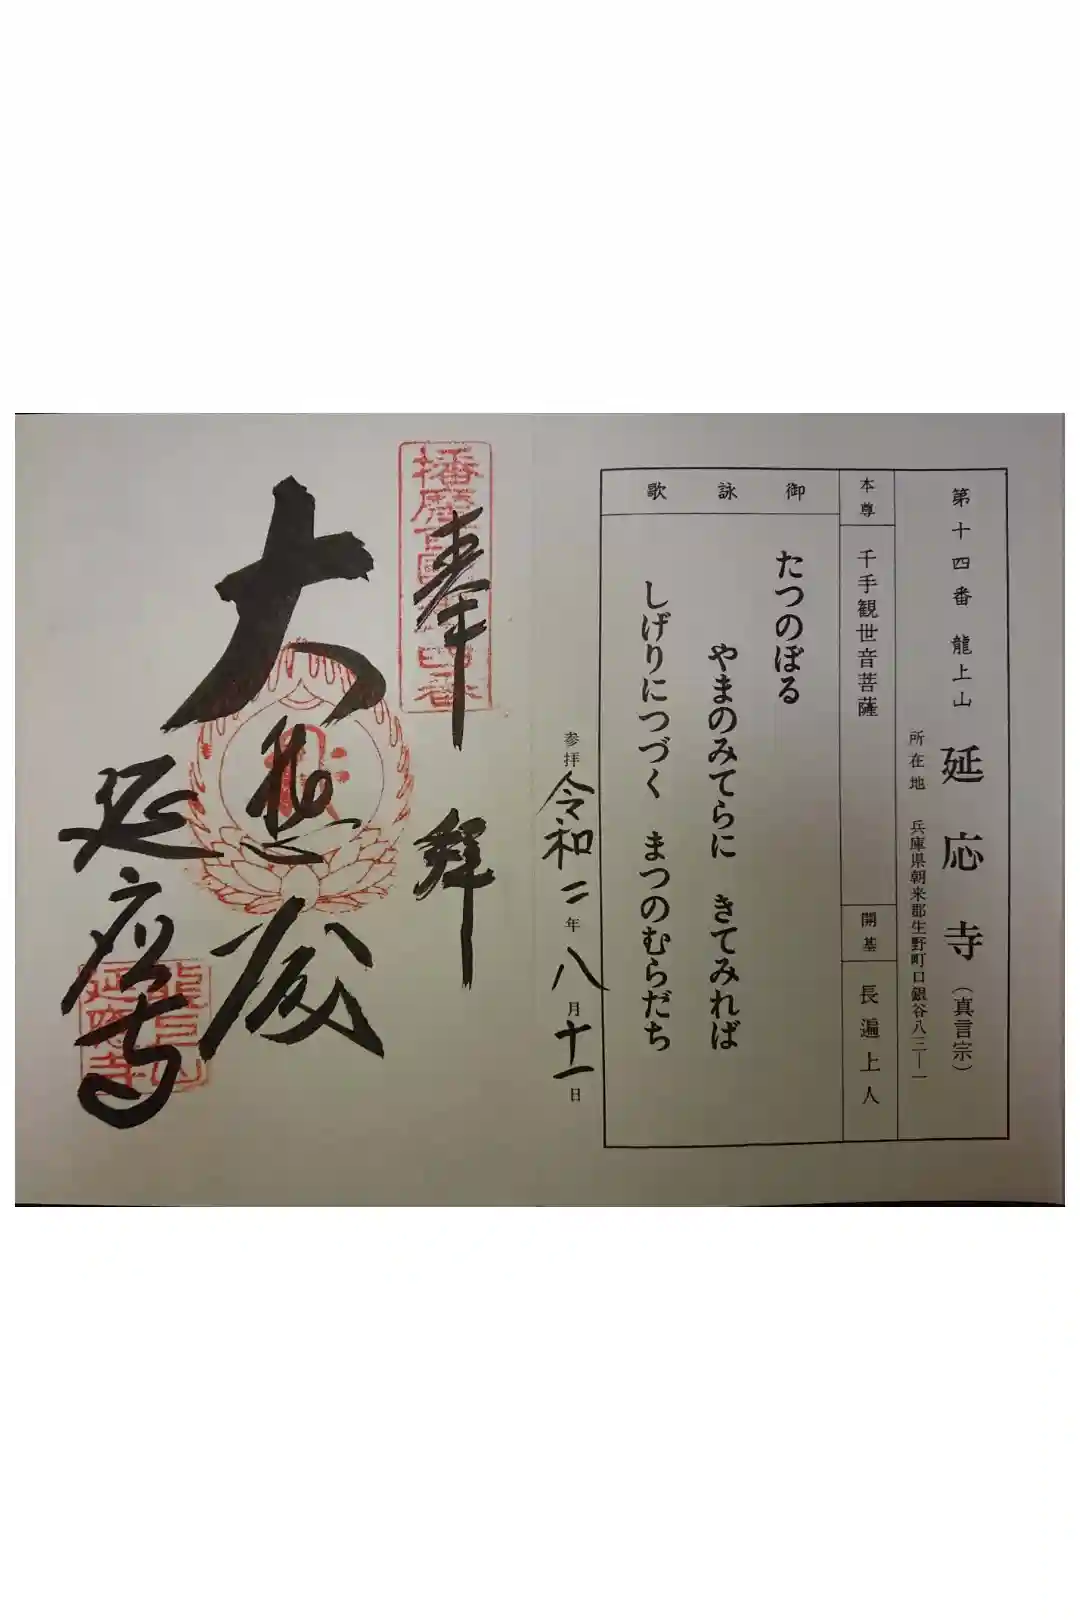 第十四番 龍上山 延応寺（真言宗）
所在地 兵庫県朝来郡生野町口銀谷八三一一
本尊 千手観世音菩薩
開基 長遍上人
御詠歌
たつのぼる
やまのみてらに きてみれば
しげりにつづく まつのむらだち
参拝 令和二年八月十一日
奉拝
大悲殿
延應寺